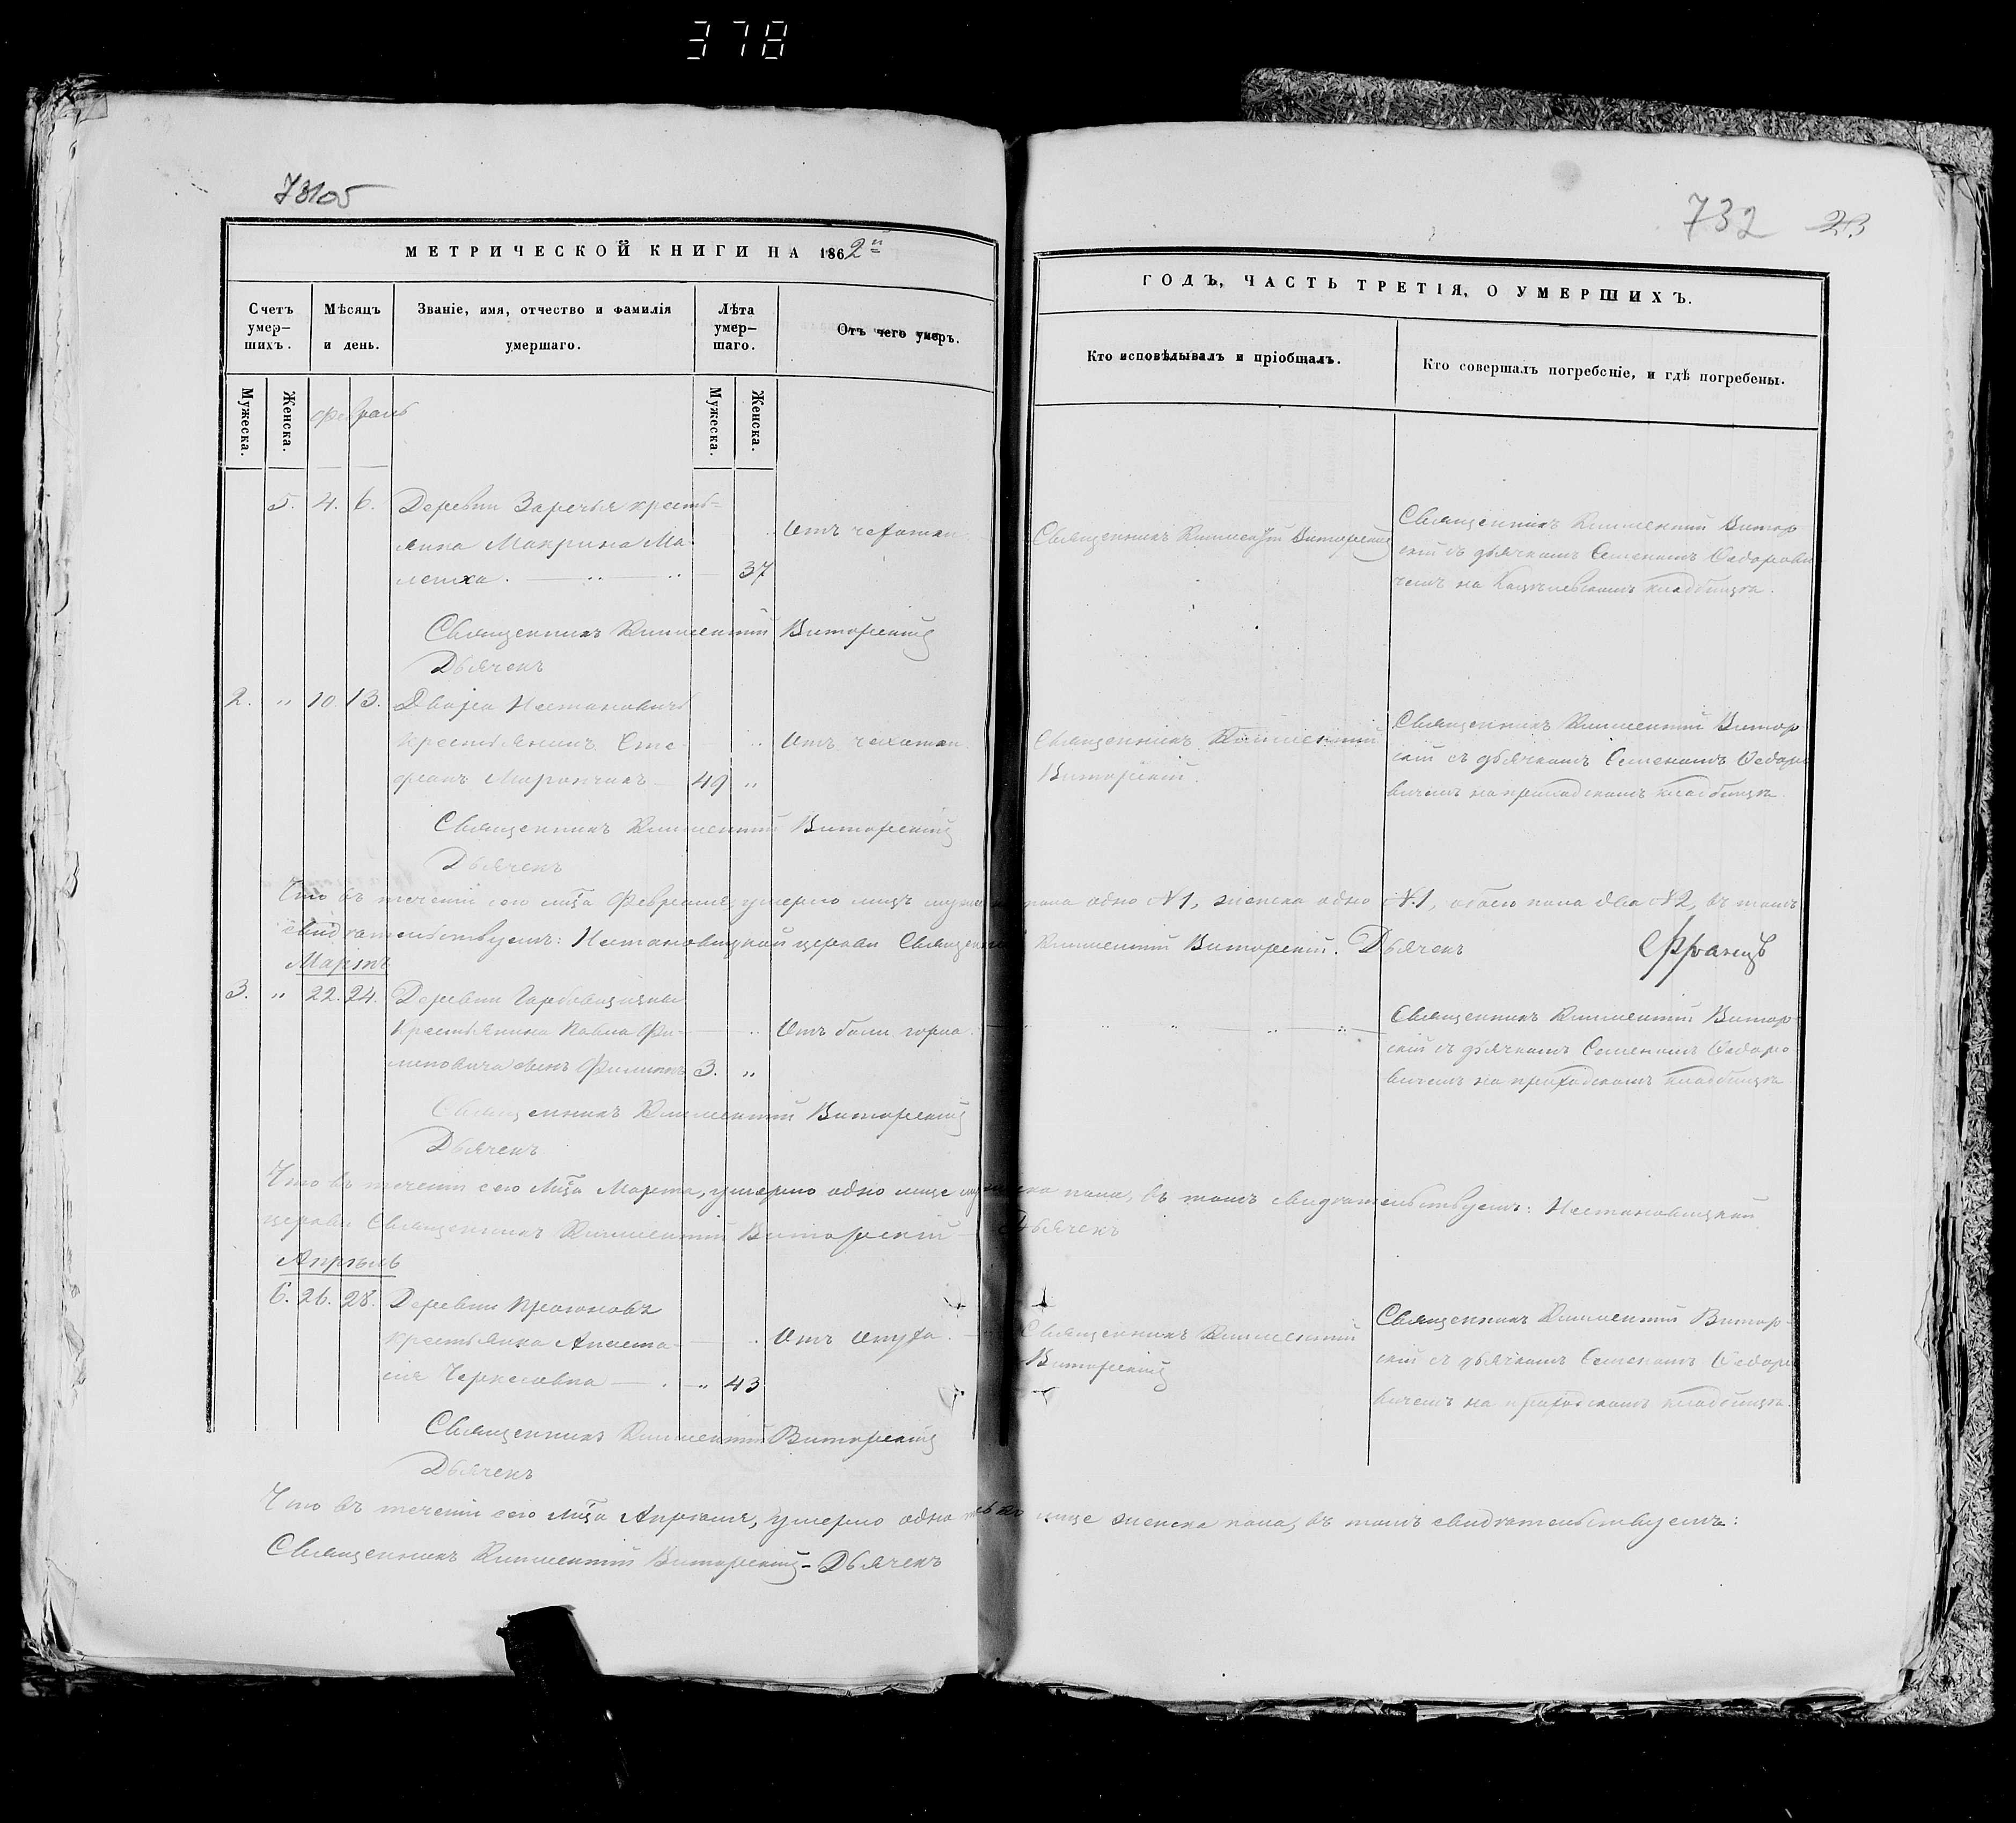 378
732 23
МЕТРИЧЕСКОЙ КНИГИ НА 1862й
ГОДЪ, ЧАСТЬ ТРЕТІЯ, О УМЕРШИХЪ.
Счетъ умер-шихъ.
Мѣсяцъ и день.
Званіе, имя, отчество и фамилія умершаго.
Лѣта умер-шаго.
Отъ чего умеръ.
Кто исповѣдывалъ и пріобщалъ.
Кто совершалъ погребеніе, и гдѣ погребены.
Мужеска.
Женска.
Мужеска.
Женска.
Февраль
5. 4. 6. Деревни Заречья кресть=
янка Макрина Ма-
37
Отъ чахотки.
Священникъ Климентій Виторскій
Священникъ Климентій Витор
скій съ дьячкомъ Семеномъ Федорови
чемъ на кладбищѣ.
Священникъ Климентій Виторскій
Дьячекъ
2. „ 10. 13. Двора
крестьянинъ Сте-
фанъ 49 „
Отъ чахотки
Священникъ Климентій
Виторскій.
Священникъ Климентій Витор
скій съ дьячкомъ Семеномъ Федоро
вичемъ на приходскомъ кладбищѣ.
Священникъ Климентій Виторскій
Дьячекъ
Что въ теченіи сего мца Февраля, умерло лицъ мужеска пола одно №1, женска одно №1, обоего пола два №2, въ томъ
свидѣтельствуетъ: церкви Священникъ Климентій Виторскій. Дьячекъ
Мартъ
3. „ 22. 24. Деревни
крестьянина Павла Фи-
сынъ Филиппъ 3. „
Отъ боли горла.
Священникъ Климентій Витор
скій съ дьячкомъ Семеномъ Федоро
вичемъ на приходскомъ кладбищѣ
Священникъ Климентій Виторскій
Дьячекъ
Что въ теченіи сего мца Марта, умерло одно лице мужеска пола, въ томъ свидѣтельствуетъ:
церкви Священникъ Климентій Виторскій – Дьячекъ
Апрѣль
6. 26. 28. Деревни
крестьянка Анаста-
сія „ 43
Отъ опуха.
Священникъ Климентій
Виторскій
Священникъ Климентій Витор-
скій съ дьячкомъ Семеномъ Федоро
вичемъ на приходскомъ кладбищѣ.
Священникъ Климентій Виторскій
Дьячекъ
Что въ теченіи сего мца Апрѣля, умерло одно только лице женска пола, въ томъ свидѣтельствуетъ:
Священникъ Климентій Виторскій – Дьячекъ